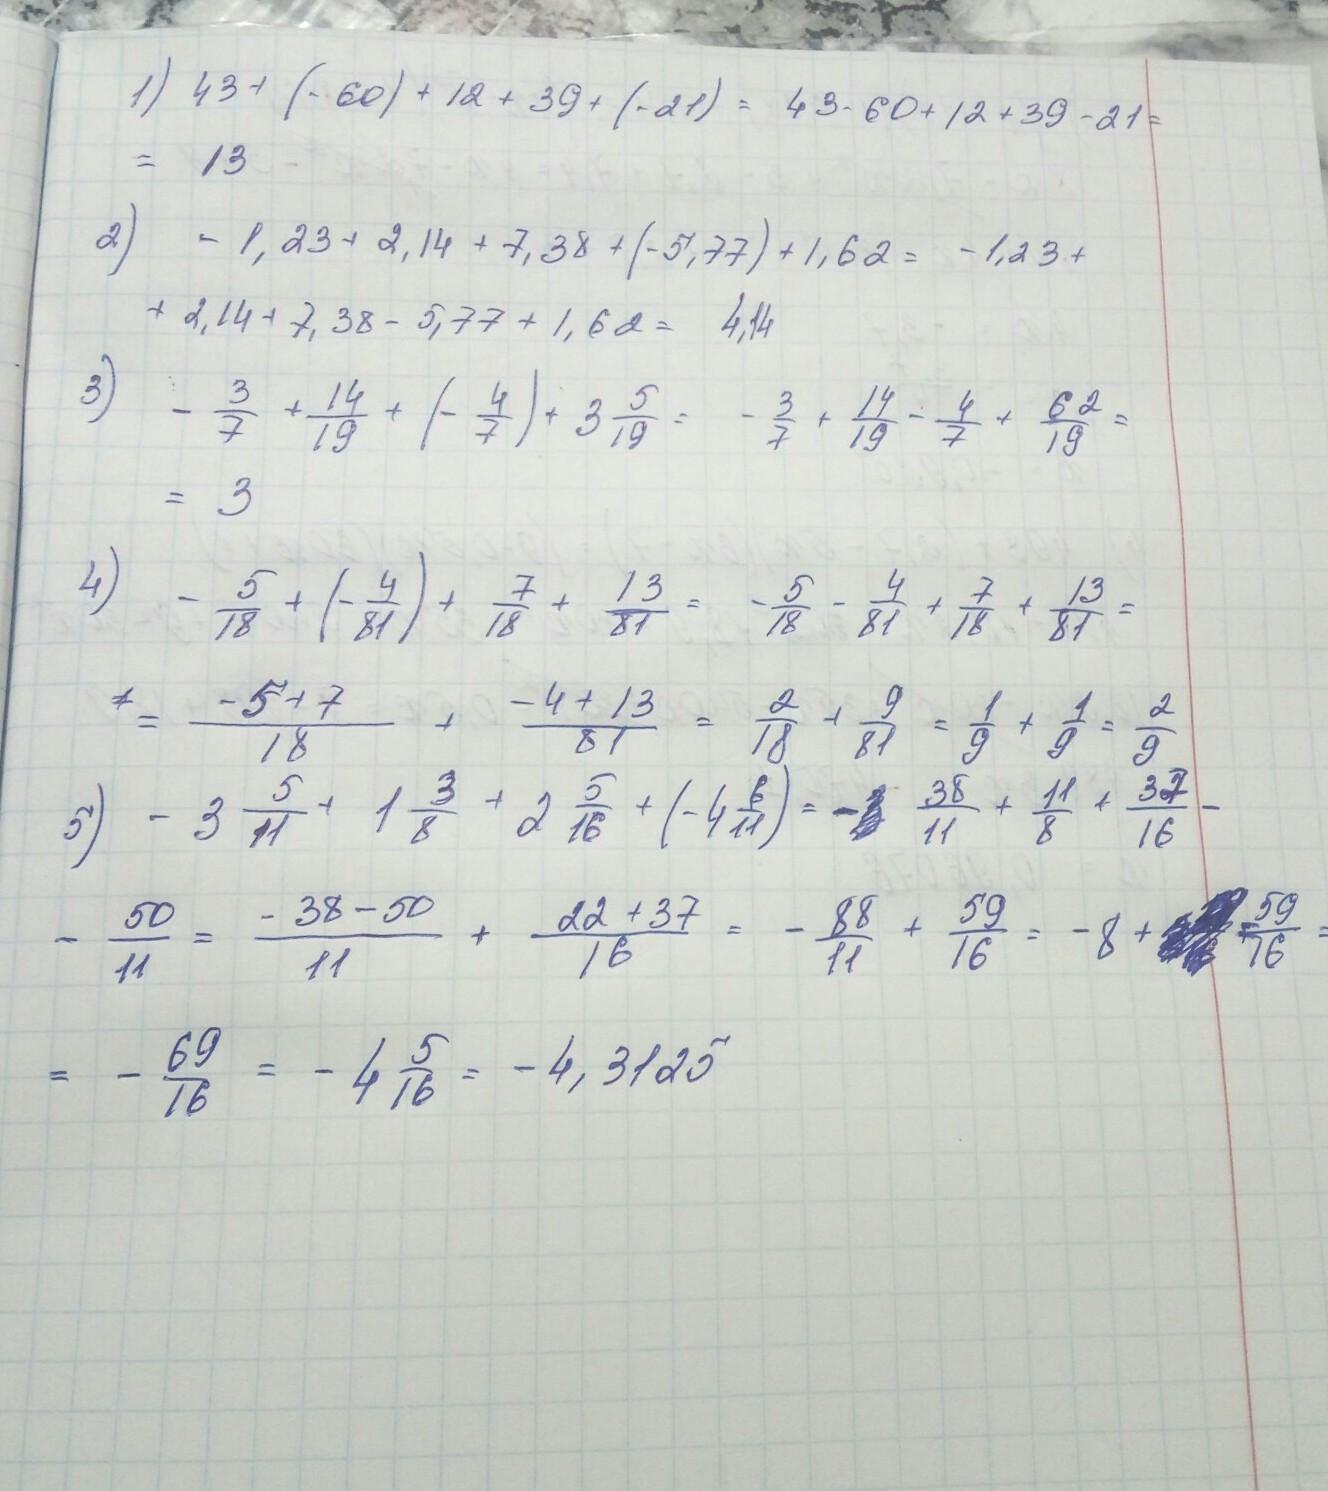 1) 43 + (- 60) + 12 + 39 + (-21) = 43 - 60 + 12 + 39 - 21 =
= 13
2) - 1,23 + 2,14 + 7,38 + (-5,77) + 1,62 = -1,23 +
+ 2,14 + 7,38 - 5,77 + 1,62 = 4,14
3) - 3/7 + 14/19 + (- 4/7) + 3 5/19 = - 3/7 + 14/19 - 4/7 + 62/19 =
= 3
4) - 5/18 + (- 4/81) + 7/18 + 13/81 = - 5/18 - 4/81 + 7/18 + 13/81 =
= -5+7/18 + -4+13/81 = 2/18 + 9/81 = 1/9 + 1/9 = 2/9
5) - 3 5/11 + 1 3/8 + 2 5/16 + (-4 6/11) = - 38/11 + 11/8 + 37/16 -
- 50/11 = -38-50/11 + 22+37/16 = - 88/11 + 59/16 = -8 + 59/16 =
= - 69/16 = - 4 5/16 = - 4,3125